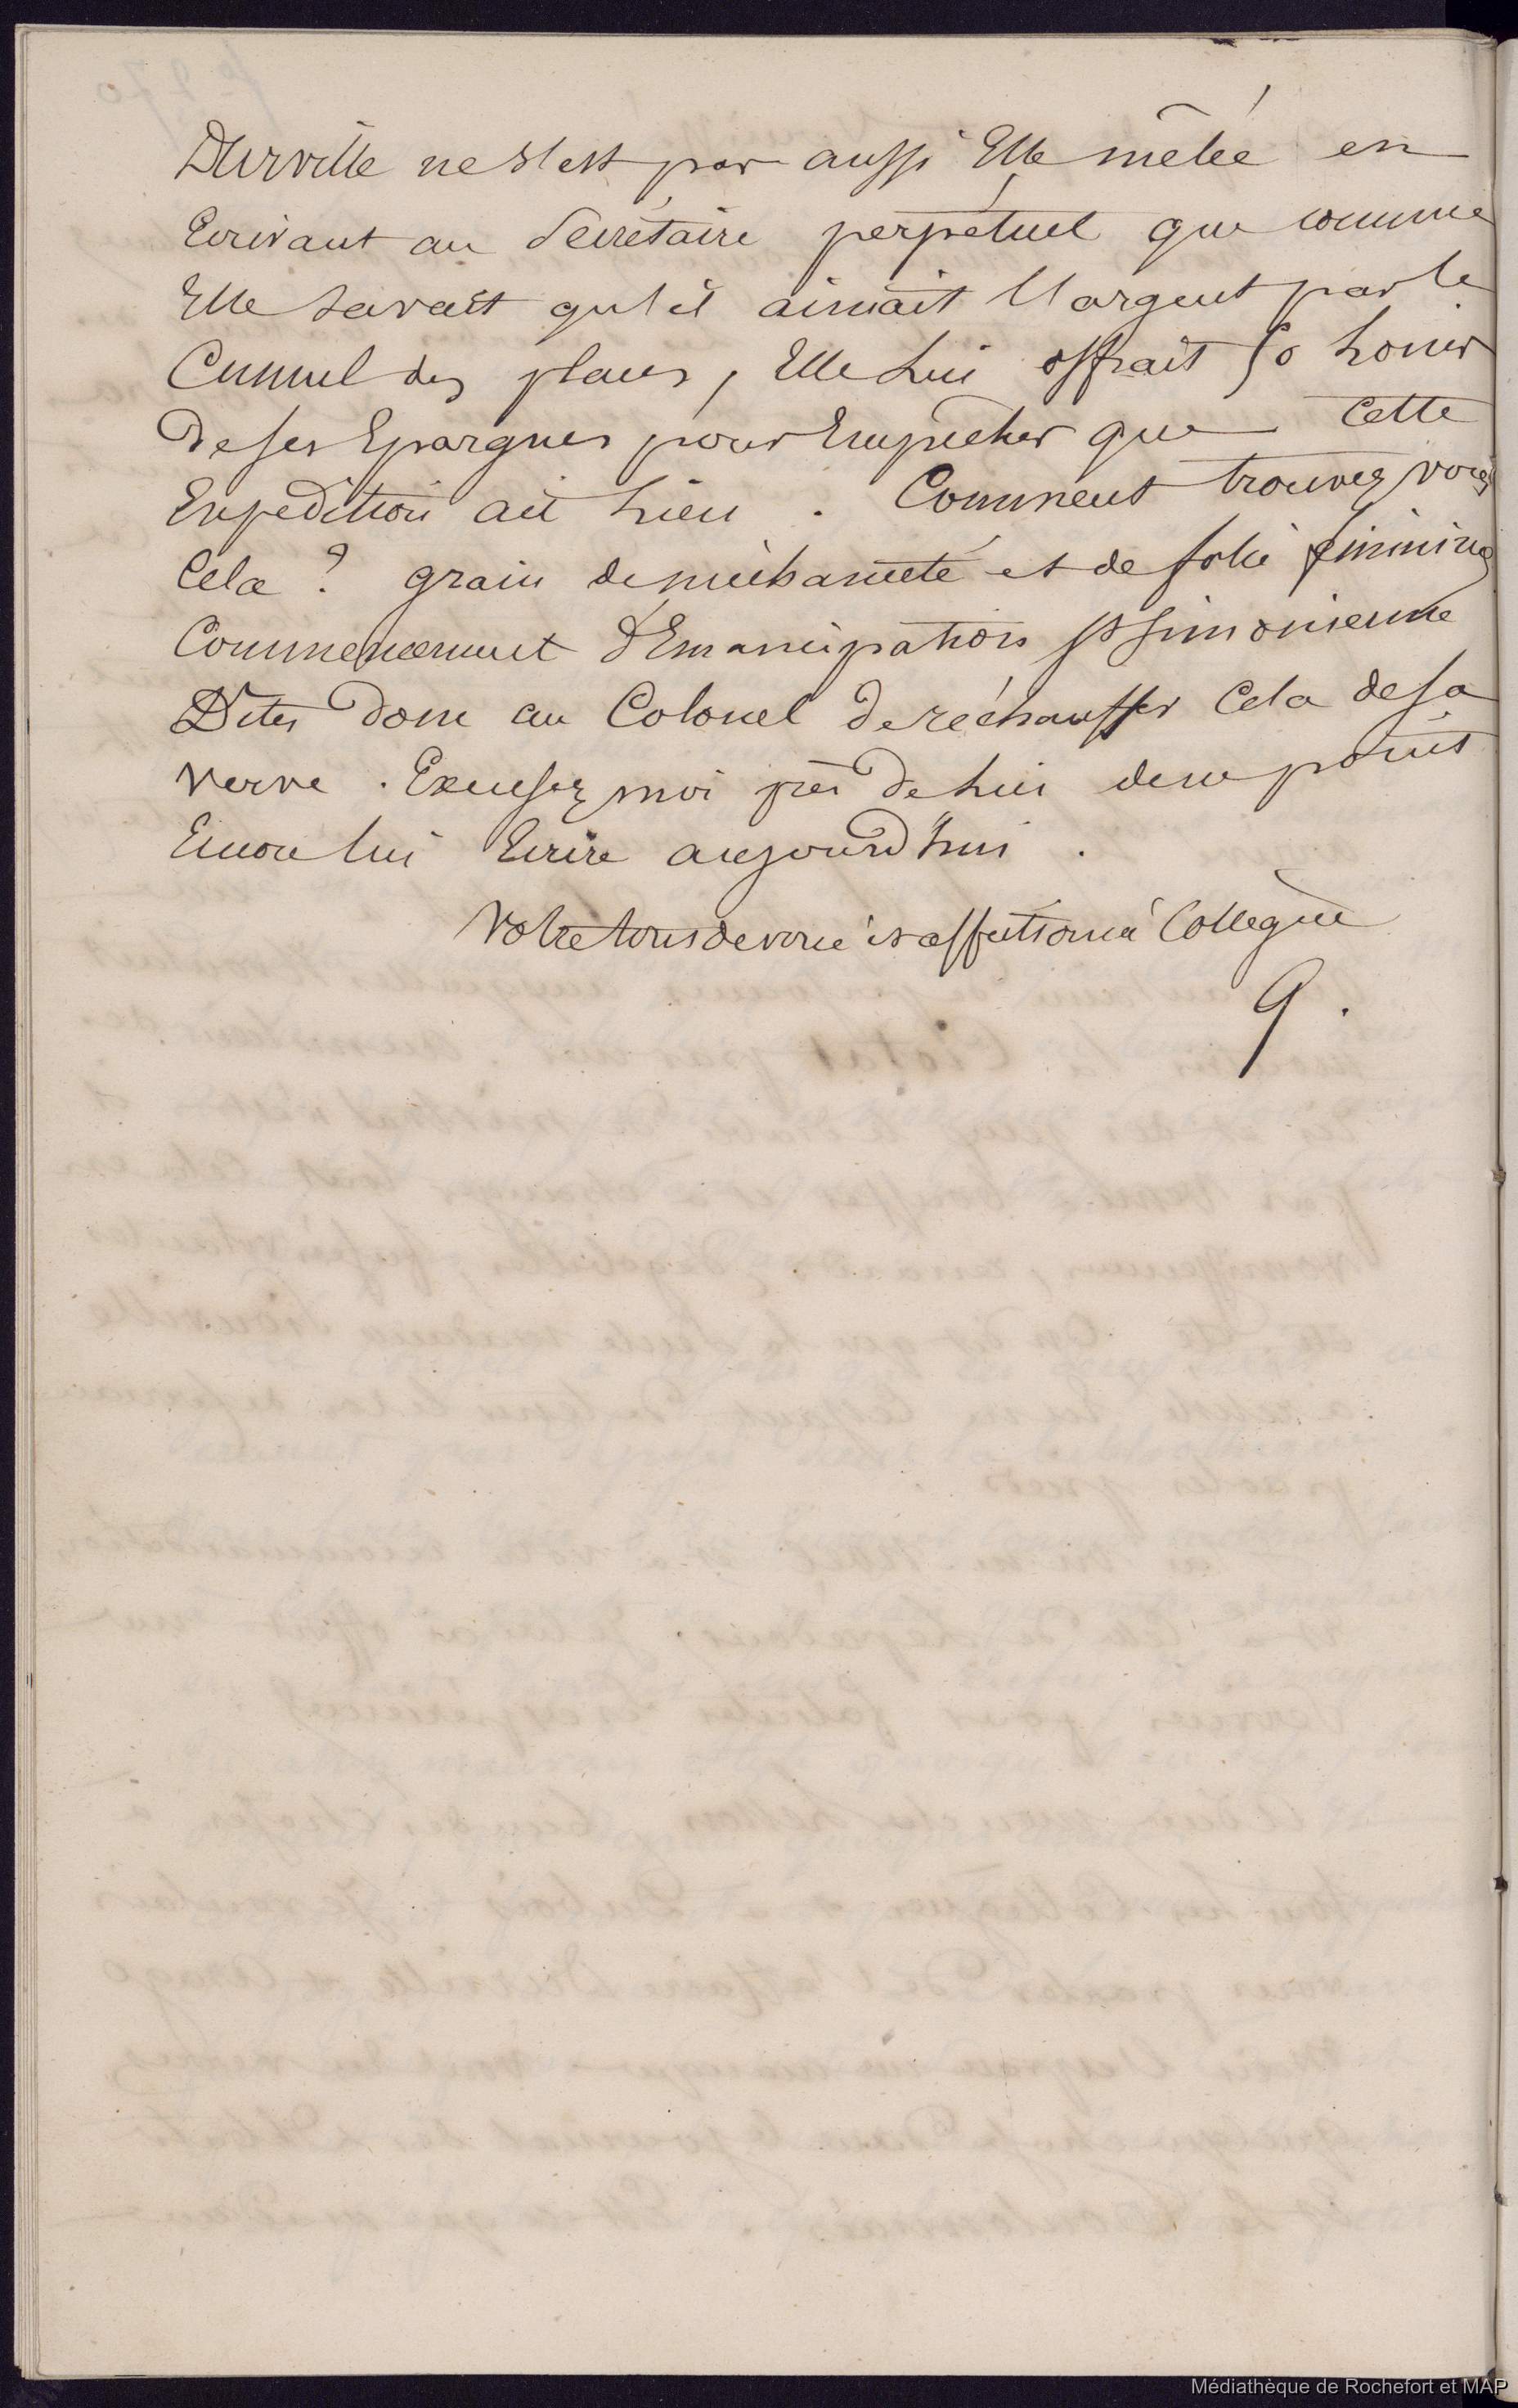 D'Urville ne s'est pas aussi Elle mêlée en
Ecrivant au Secrétaire perpétuel que comme
Elle savait qu'il aimait l'argent par le
Cumul des places, Elle lui offrait 50 louis
de ses Epargnes pour Empêcher que Cette
Expedition ait lieu . Comment trouvez vous
Cela ? grain de méchanceté et de folie féminine
Commencement d'Emancipation St Simonienne
Dites donc au Colonel de réchauffer Cela de sa
verve . Excusez moi près de lui de ne point
Encore lui Ecrire aujourd'hui .
Votre tous devoué et affectionné Collegue
G .
Médiathèque de Rochefort et MAP